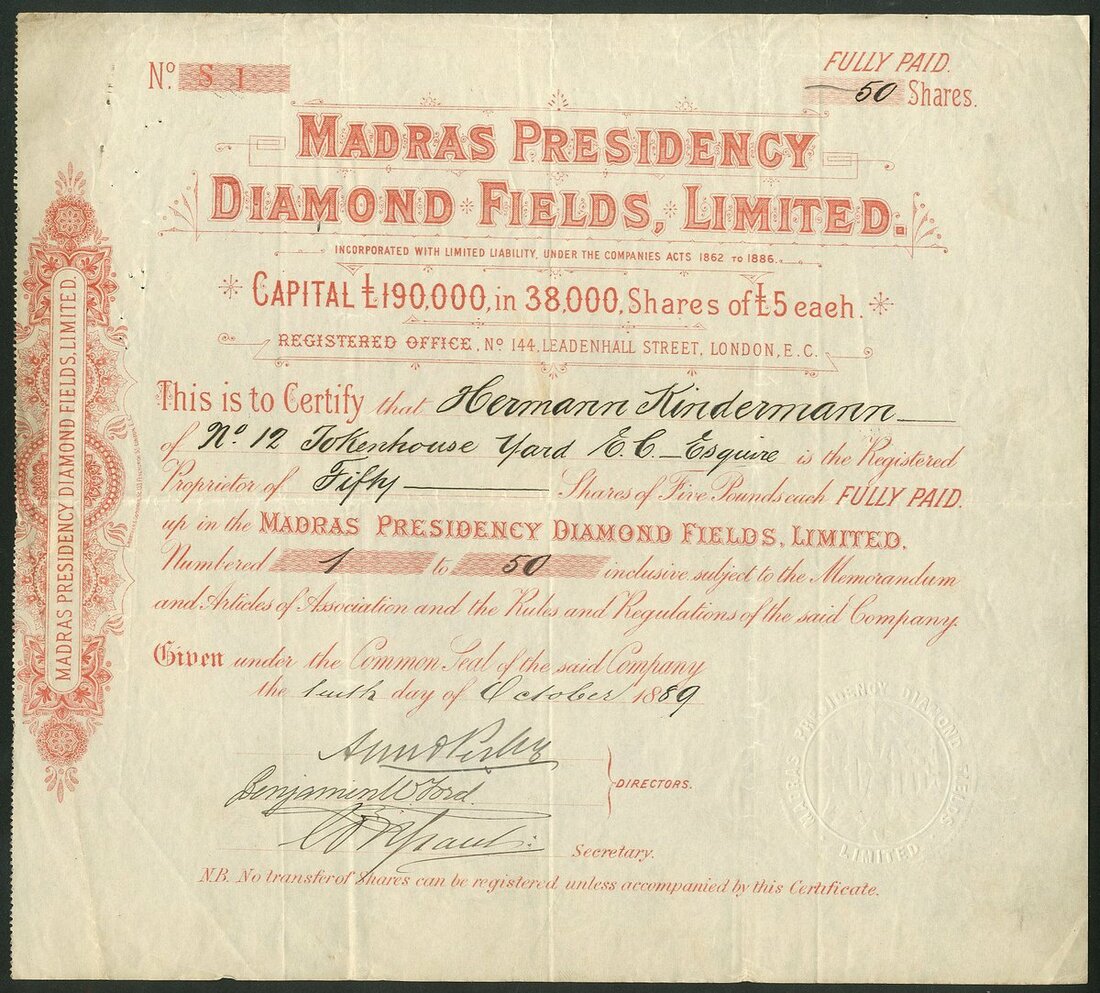 No. S 1
FULLY PAID.
50 Shares.
MADRAS PRESIDENCY
DIAMOND FIELDS, LIMITED.
INCORPORATED WITH LIMITED LIABILITY, UNDER THE COMPANIES ACTS 1862 TO 1886.
CAPITAL £190,000, in 38,000, Shares of £5 each.
REGISTERED OFFICE, No 144, LEADENHALL STREET, LONDON, E.C.
This is to Certify that Hermann Kindermann
of No. 12 Tokenhouse Yard E.C. Esquire is the Registered
Proprietor of Fifty Shares of Five Pounds each FULLY PAID.
up in the MADRAS PRESIDENCY DIAMOND FIELDS, LIMITED.
Numbered 1 to 50 inclusive subject to the Memorandum
and Articles of Association and the Rules and Regulations of the said Company.
Given under the Common Seal of the said Company
the tenth day of October 1889
Benjamin W Ford
DIRECTORS.
Secretary.
N.B. No transfer of Shares can be registered unless accompanied by this Certificate.
MADRAS PRESIDENCY DIAMOND FIELDS, LIMITED.
MADRAS PRESIDENCY DIAMOND FIELDS
LIMITED